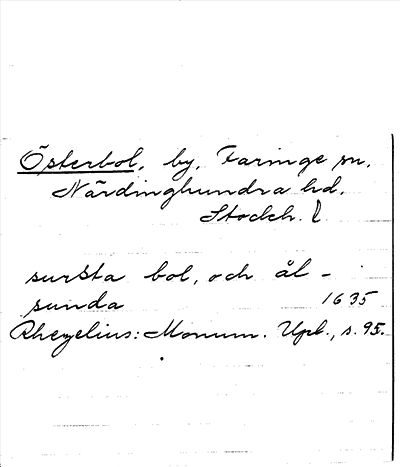 Österbol, by, Faringe sn,
Närdinghundra hd,
Stockh. l
sursta bol, och ål-
sunda 1635
Rhezelius: Monum. Upl., s. 95.